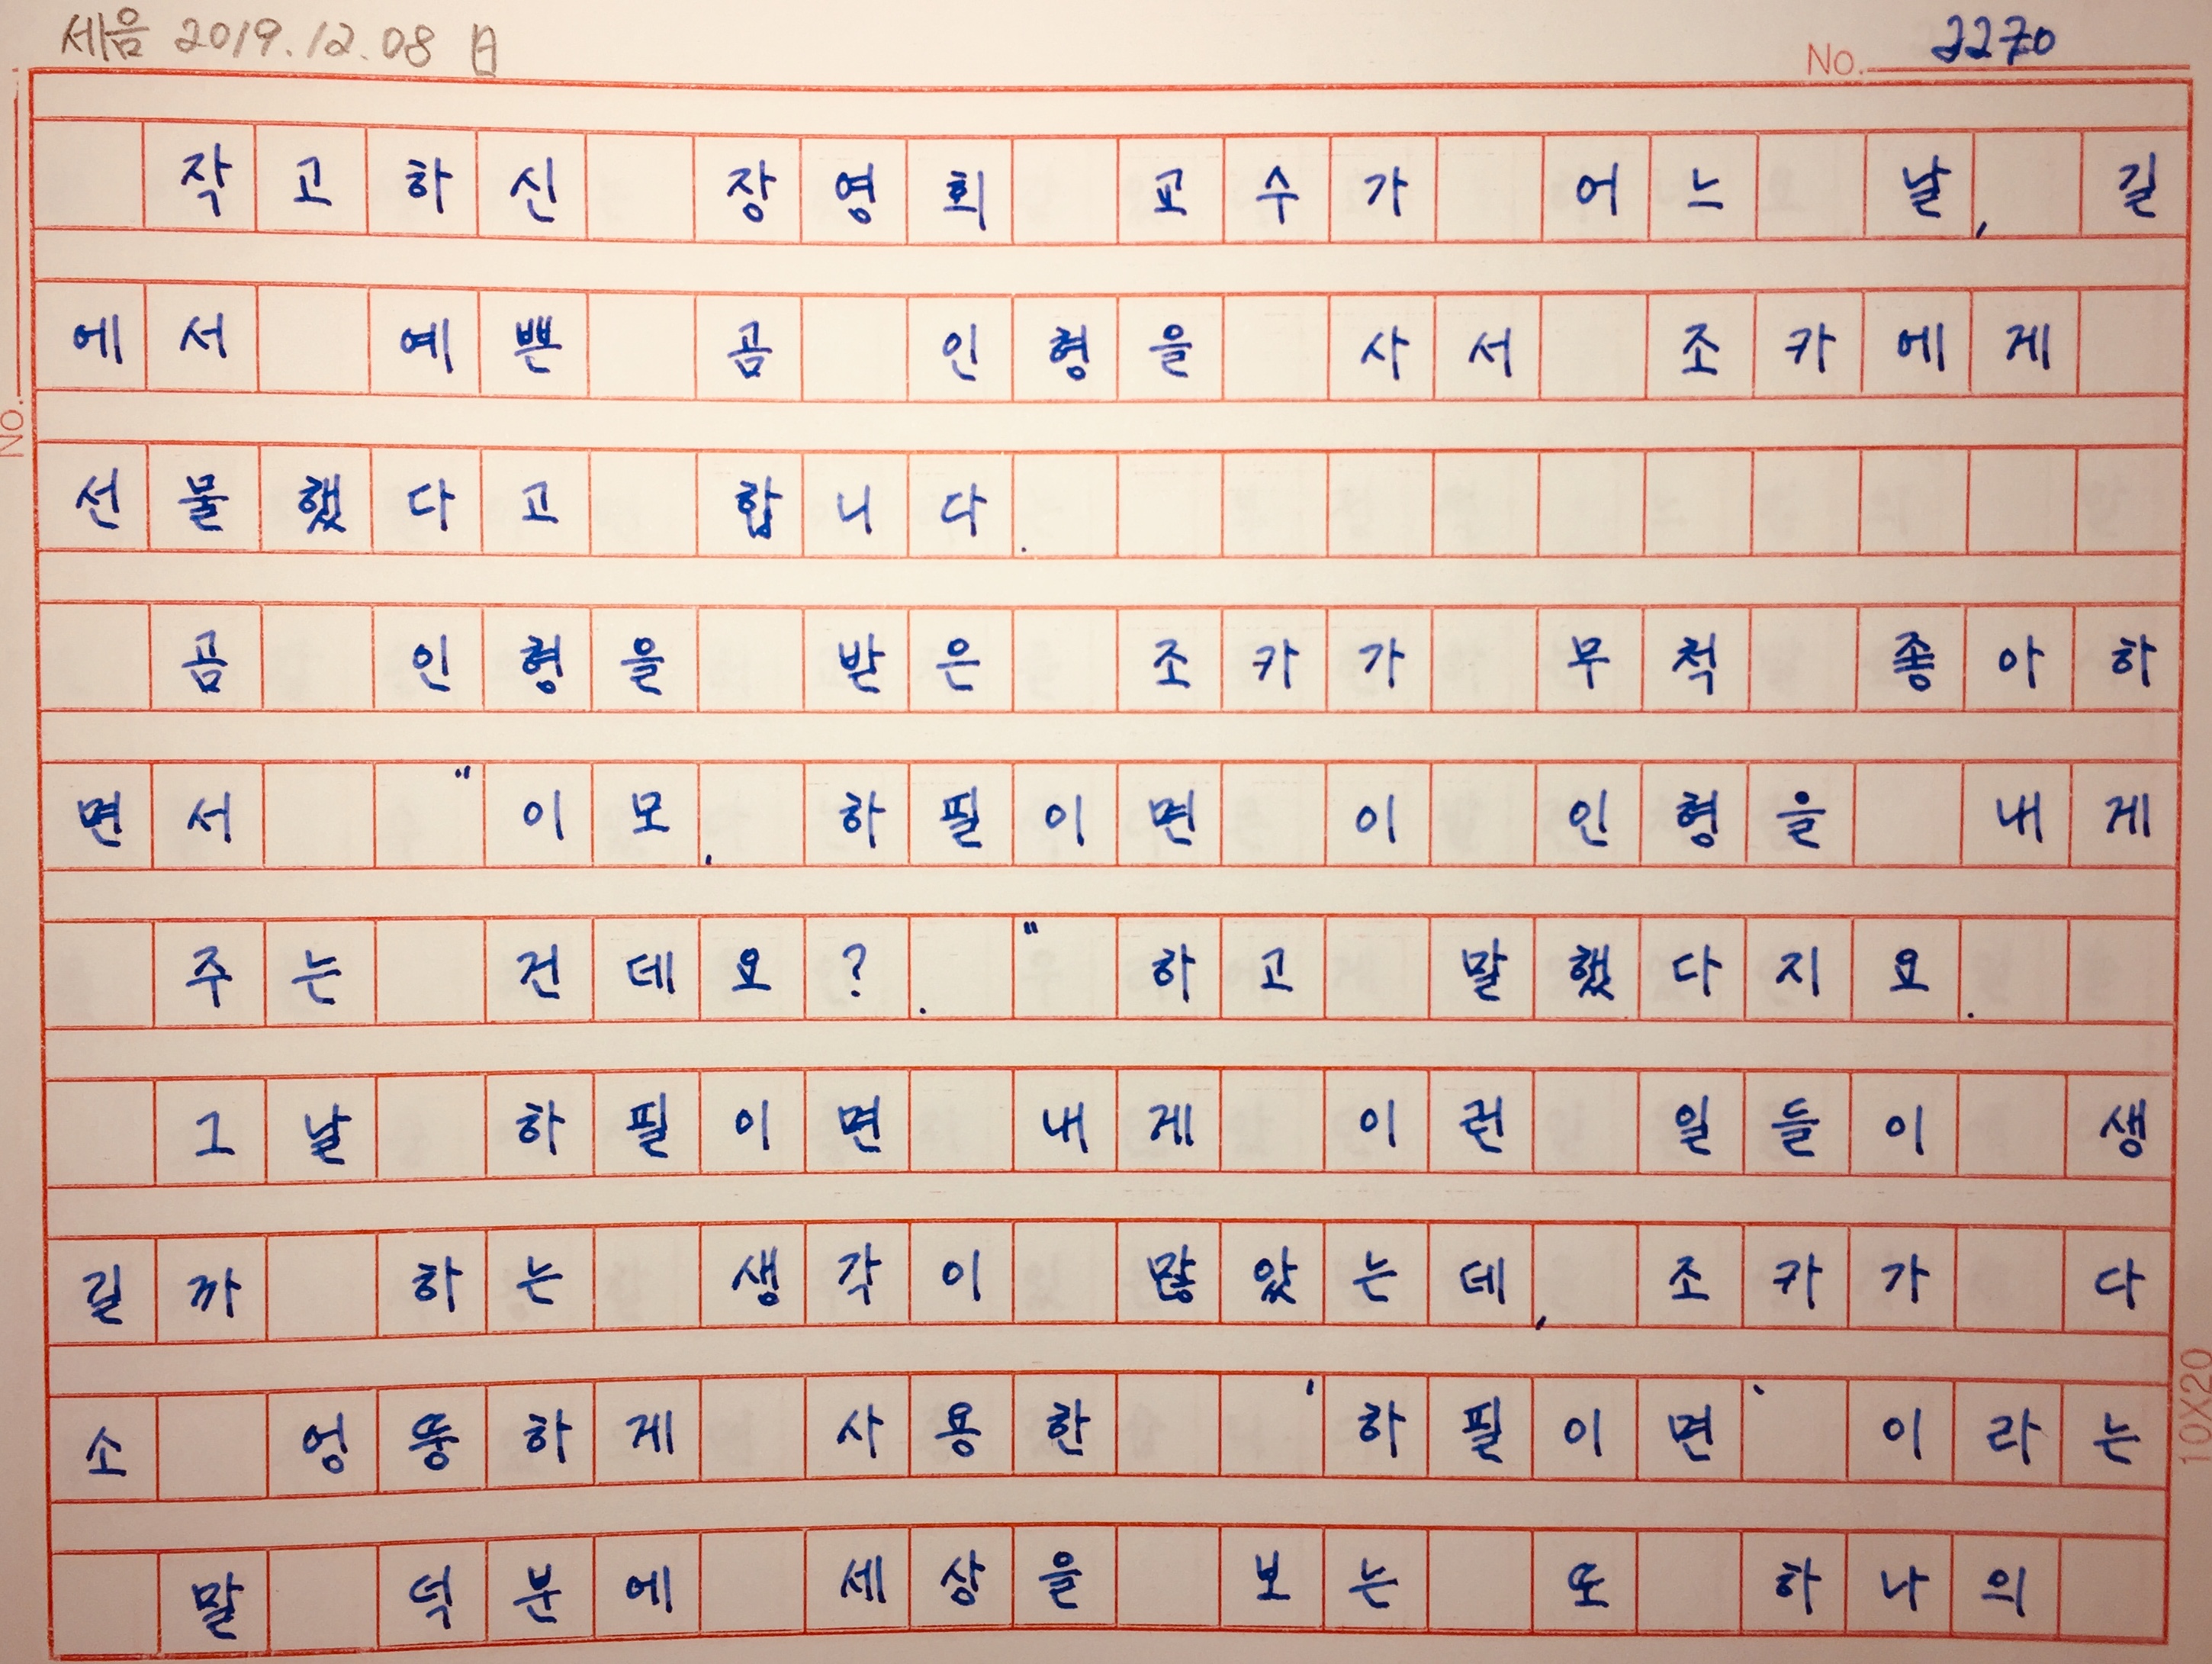 세음 2019.12.08 日
No. 2270
작고하신 장영희 교수가 어느 날, 길
에서 예쁜 곰 인형을 사서 조카에게
선물했다고 합니다.
곰 인형을 받은 조카가 무척 좋아하
면서 "이모, 하필이면 이 인형을 내게
주는 건데요?." 하고 말했다지요.
그날 하필이면 내게 이런 일들이 생
길까 하는 생각이 많았는데, 조카가 다
소 엉뚱하게 사용한 '하필이면' 이라는
말 덕분에 세상을 보는 또 하나의
No.
10X20